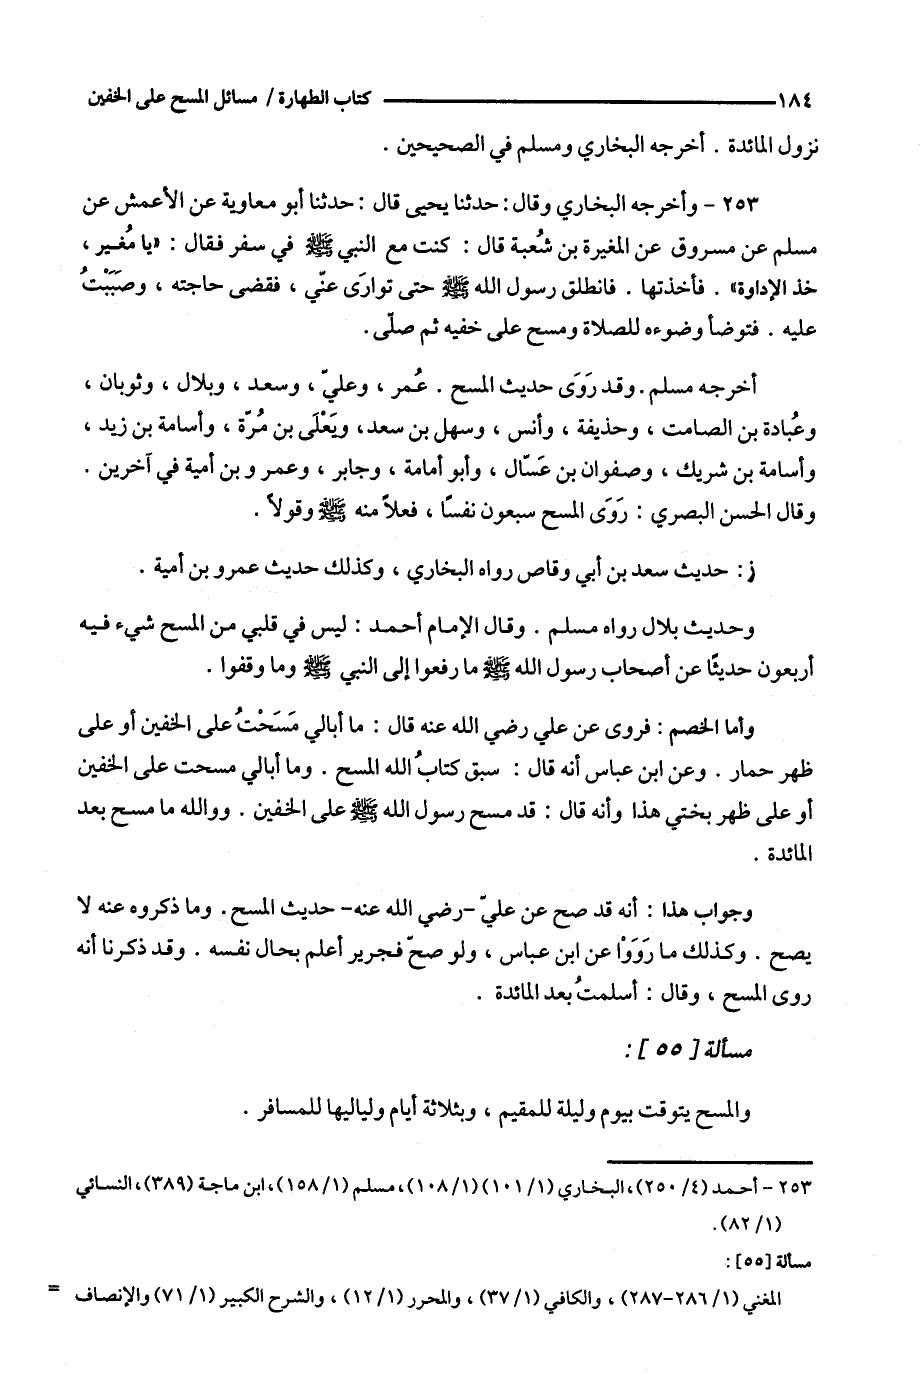 ١٨٤ كتاب الطهارة / مسائل المسح على الخفين
نزول المائدة . أخرجه البخاري ومسلم في الصحيحين .
٢٥٣ - وأخرجه البخاري وقال : حدثنا يحيى قال : حدثنا أبو معاوية عن الأعمش عن
مسلم عن مسروق عن المغيرة بن شُعبة قال : كنت مع النبي ﷺ في سفر فقال : «يا مُغير ،
خذ الإداوة» . فأخذتها . فانطلق رسول الله ﷺ حتى توارَى عنّي ، فقضى حاجته ، وصَبَبْتُ
عليه . فتوضأ وضوءه للصلاة ومسح على خفيه ثم صلّى.
أخرجه مسلم. وقد رَوَى حديث المسح . عُمر ، وعليّ ، وسعد ، وبلال ، وثوبان ،
وعُبادة بن الصامت ، وحذيفة ، وأنس ، وسهل بن سعد، ويَعْلَى بن مُرّة ، وأسامة بن زيد ،
وأسامة بن شريك ، وصفوان بن عَسّال ، وأبو أمامة ، وجابر ، وعمرو بن أمية في آخرين .
وقال الحسن البصري : رَوَى المسح سبعون نفسًا ، فعلاً منه ﷺ وقولاً .
ز : حديث سعد بن أبي وقاص رواه البخاري ، وكذلك حديث عمرو بن أمية .
وحديث بلال رواه مسلم . وقال الإمام أحمد : ليس في قلبي من المسح شيء فيه
أربعون حديثًا عن أصحاب رسول الله ﷺ ما رفعوا إلى النبي ﷺ وما وقفوا .
وأما الخصم : فروى عن علي رضي الله عنه قال : ما أبالي مَسَحْتُ على الخفين أو على
ظهر حمار . وعن ابن عباس أنه قال : سبق كتابُ الله المسح . وما أبالي مسحت على الخفين
أو على ظهر بختي هذا وأنه قال : قد مسح رسول الله ﷺ على الخفين . ووالله ما مسح بعد
المائدة .
وجواب هذا : أنه قد صح عن عليّ -رضي الله عنه- حديث المسح. وما ذكروه عنه لا
يصح . وكذلك ما رَوَوْا عن ابن عباس ، ولو صحّ فجرير أعلم بحال نفسه . وقد ذكرنا أنه
روى المسح ، وقال : أسلمتُ بعد المائدة .
مسألة [ ٥٥ ] :
والمسح يتوقت بيوم وليلة للمقيم ، وبثلاثة أيام ولياليها للمسافر .
٢٥٣ - أحمد (٤/ ٢٥٠)، البخاري (١/ ١٠١) (١/ ١٠٨)، مسلم (١/ ١٥٨)، ابن ماجة (٣٨٩)، النسائي
(١/ ٨٢).
مسألة [٥٥] :
المغني (١/ ٢٨٦-٢٨٧) ، والكافي (١/ ٣٧) ، والمحرر (١/ ١٢) ، والشرح الكبير (١/ ٧١) والإنصاف =